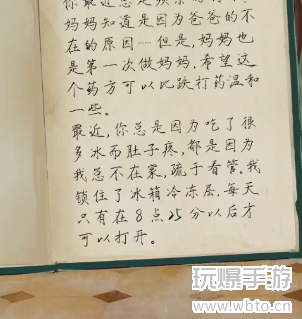 妈妈知道是因为爸爸的不
在的原因…但是,妈妈也
是第一次做妈妈.希望这
个药方可以比跌打药温和
一些。
最近,你总是因为吃了很
多冰而肚子疼,都是因为
我总不在家,疏于看管.我
锁住了冰箱冷冻层.每天
只有在8点25分以后才
可以打开。
玩爆手游
www.wbto.cn